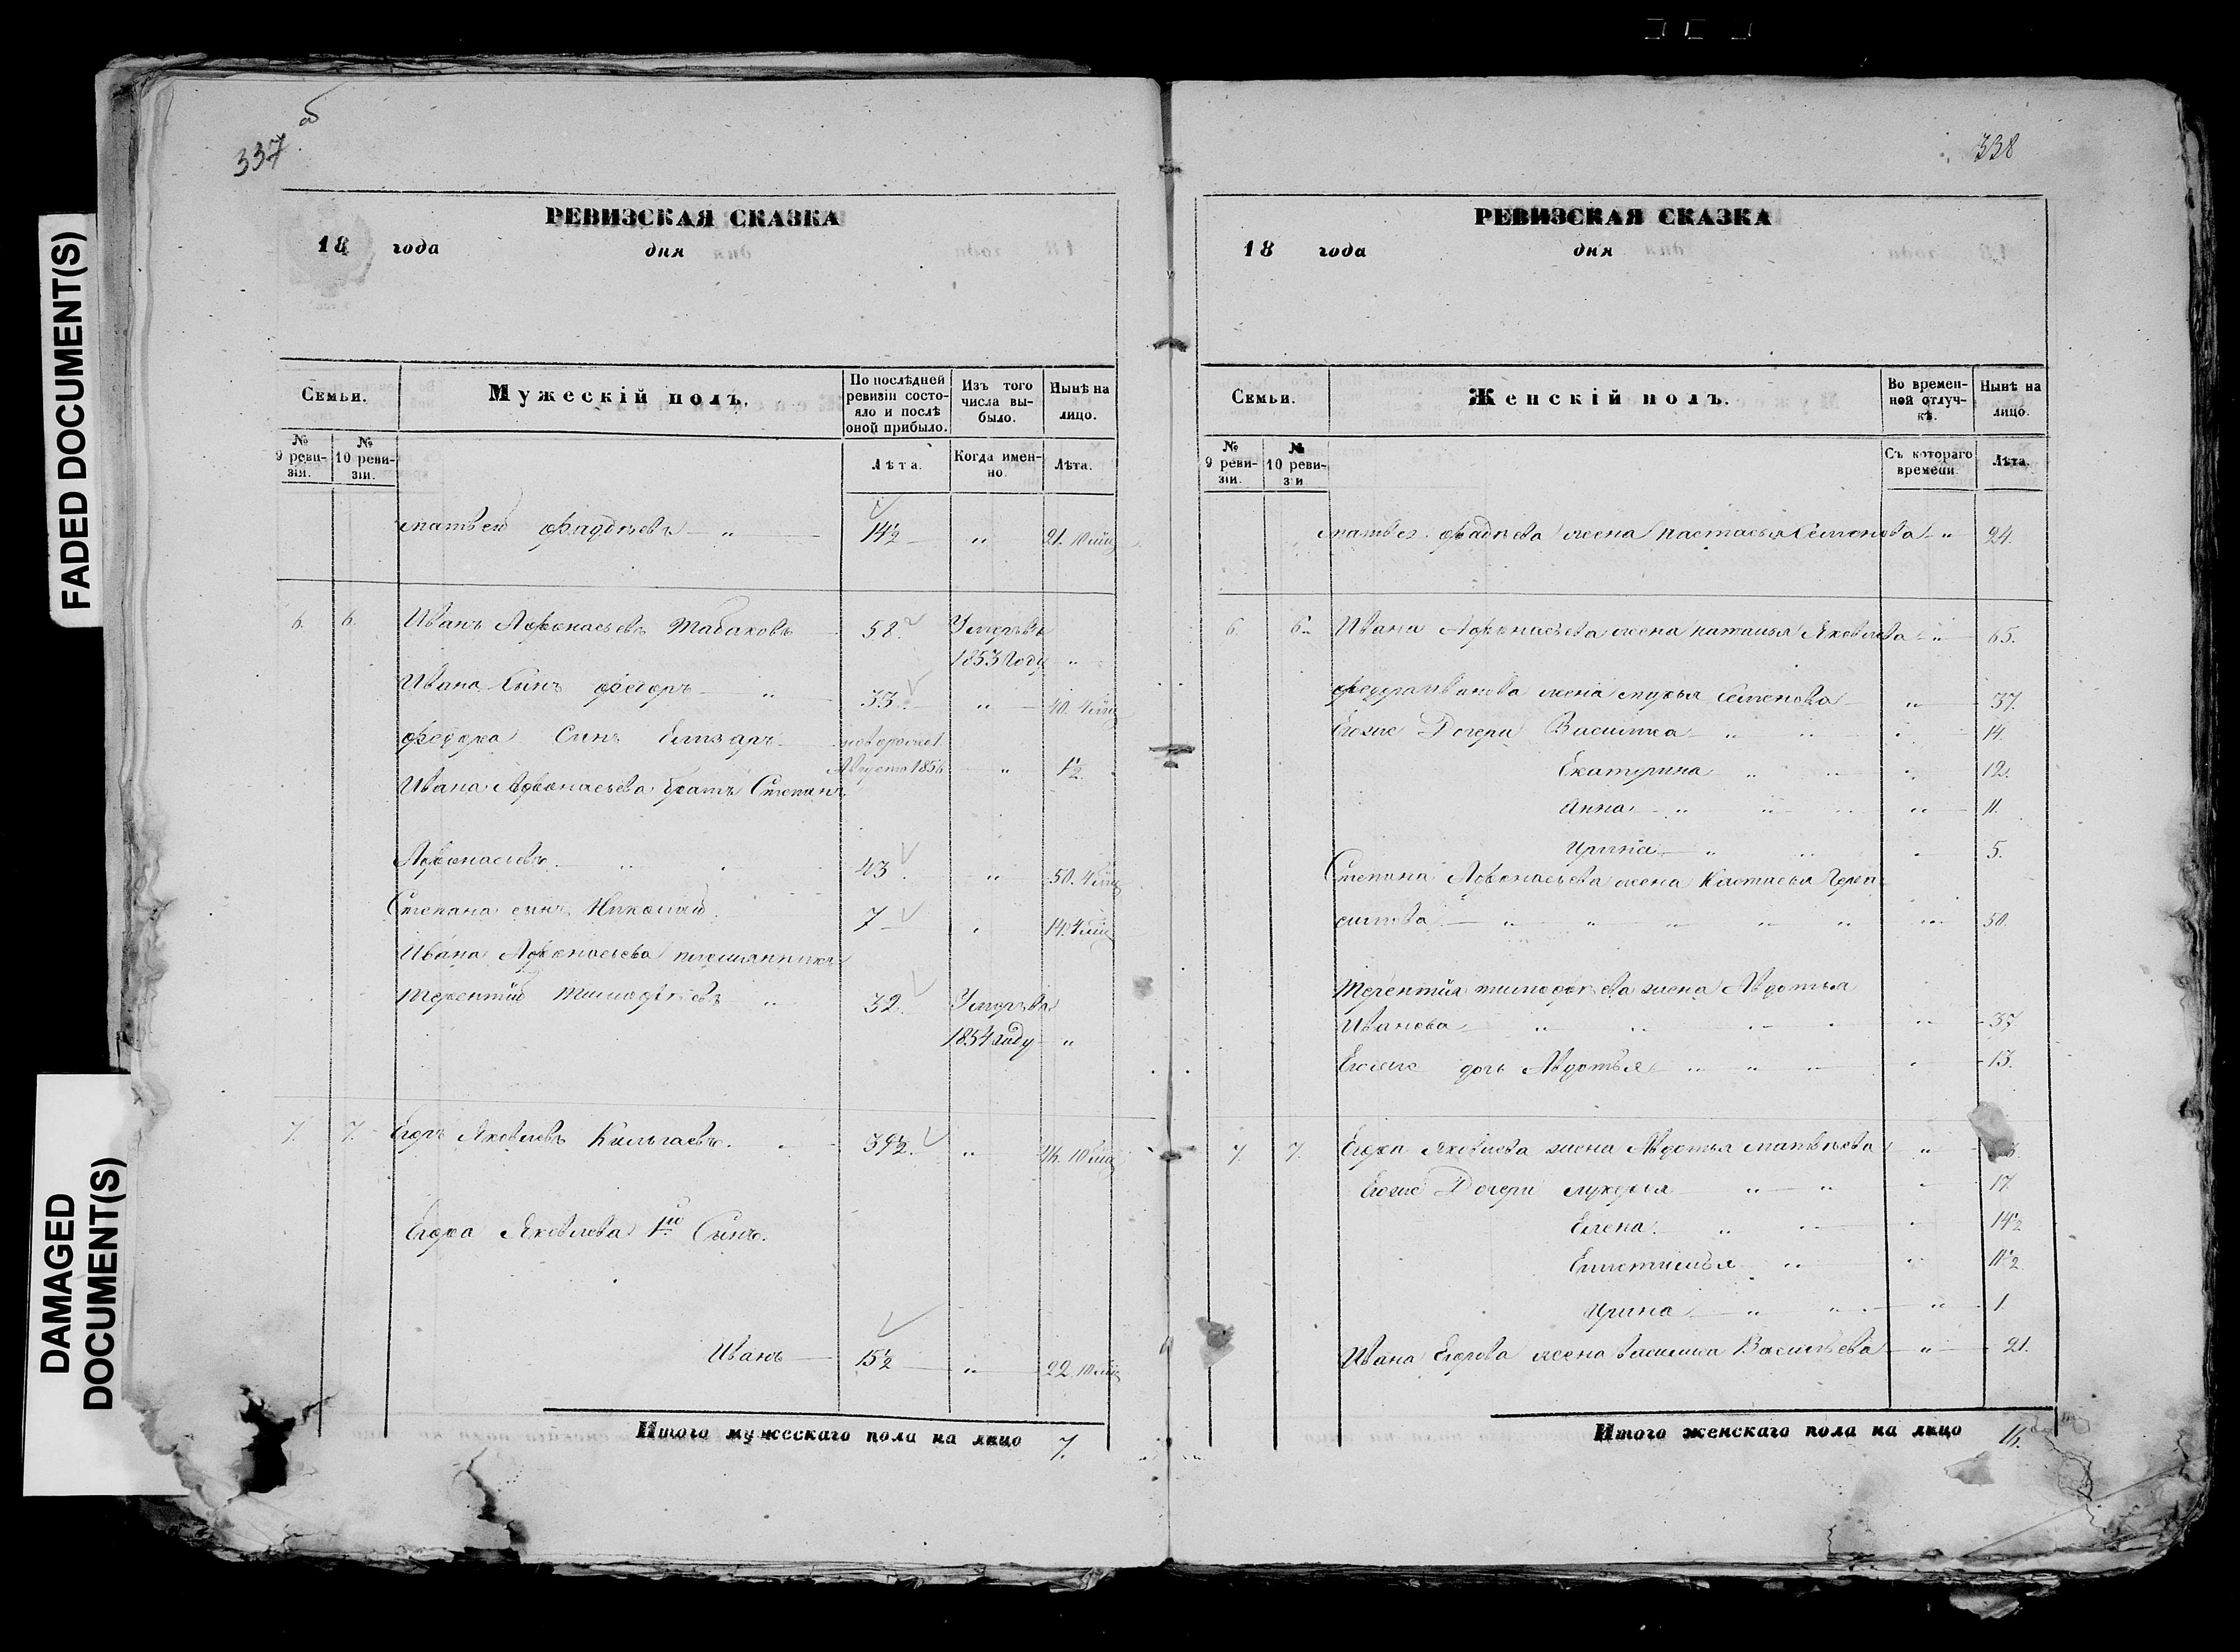 FADED DOCUMENT(S)
DAMAGED
DOCUMENT(S)
337
об
РЕВИЗСКАЯ СКАЗКА
18 года дня
Семьи.
Мужескій полъ.
По послѣдней ревизіи состояло и послѣ оной прибыло.
Изъ того числа выбыло.
Нынѣ на лицо.
№ 9 ревизіи.
№ 10 ревизіи.
Лѣта.
Когда именно.
Лѣта.
Матвей Фадѣевъ — „ 14½ „ 21. 10 мѣц
6. 6. Иванъ Афонасьевъ Табаковъ 58. Умеръ въ
1853 году „
Ивана Сынъ Федоръ — „ 33. „ 40. 4 мѣц
Федора Сынъ новорожд
Августа 1856 „ 1½.
Ивана Афонасьева братъ Степанъ
Афонасьевъ. 43. „ 50. 4 мѣц
Степана сынъ Николай. 7 „ 14. 4 мѣц
Ивана Афонасьева племянникъ
Терентій Тимофѣевъ „ 32. Умеръ въ
1854 году „
7. 7. Егоръ Яковлевъ 39½. „ 46. 10 мѣц
Егора Яковлева 1й Сынъ.
Иванъ 15½ „ 22. 10 мѣц
Итого мужескаго пола на лицо 7.
338
РЕВИЗСКАЯ СКАЗКА
18 года дня
Семьи.
Женскій полъ.
Во временной отлучкѣ.
Нынѣ на лицо.
№ 9 ревизіи.
№ 10 ревизіи
Съ котораго времени
Лѣта.
Матвея Фадѣева жена Настасья Семенова „ 24.
6. 6. Ивана Афонасьева жена Наталья Яковлева „ 65.
Федора Иванова жена Марья Семенова „ 37.
Егоже Дочери Василиса — „ 14.
Екатерина „ 12.
Анна — „ 11.
Ирина — „ 5.
Степана Афонасьева жена Настасья Гера
симова — „ 50.
Терентія Тимофѣева жена Авдотья
Иванова „ 37.
Егоже дочь Авдотья „ 13.
7. 7. Егора Яковлева жена Авдотья Матвѣева „
Егоже Дочери Лукерья „ 17.
Елена. „ 14½
„ 11½.
Ирина — „ 1.
Ивана Егорова жена Василиса Васильева „ 21.
Итого женскаго пола на лицо 16.